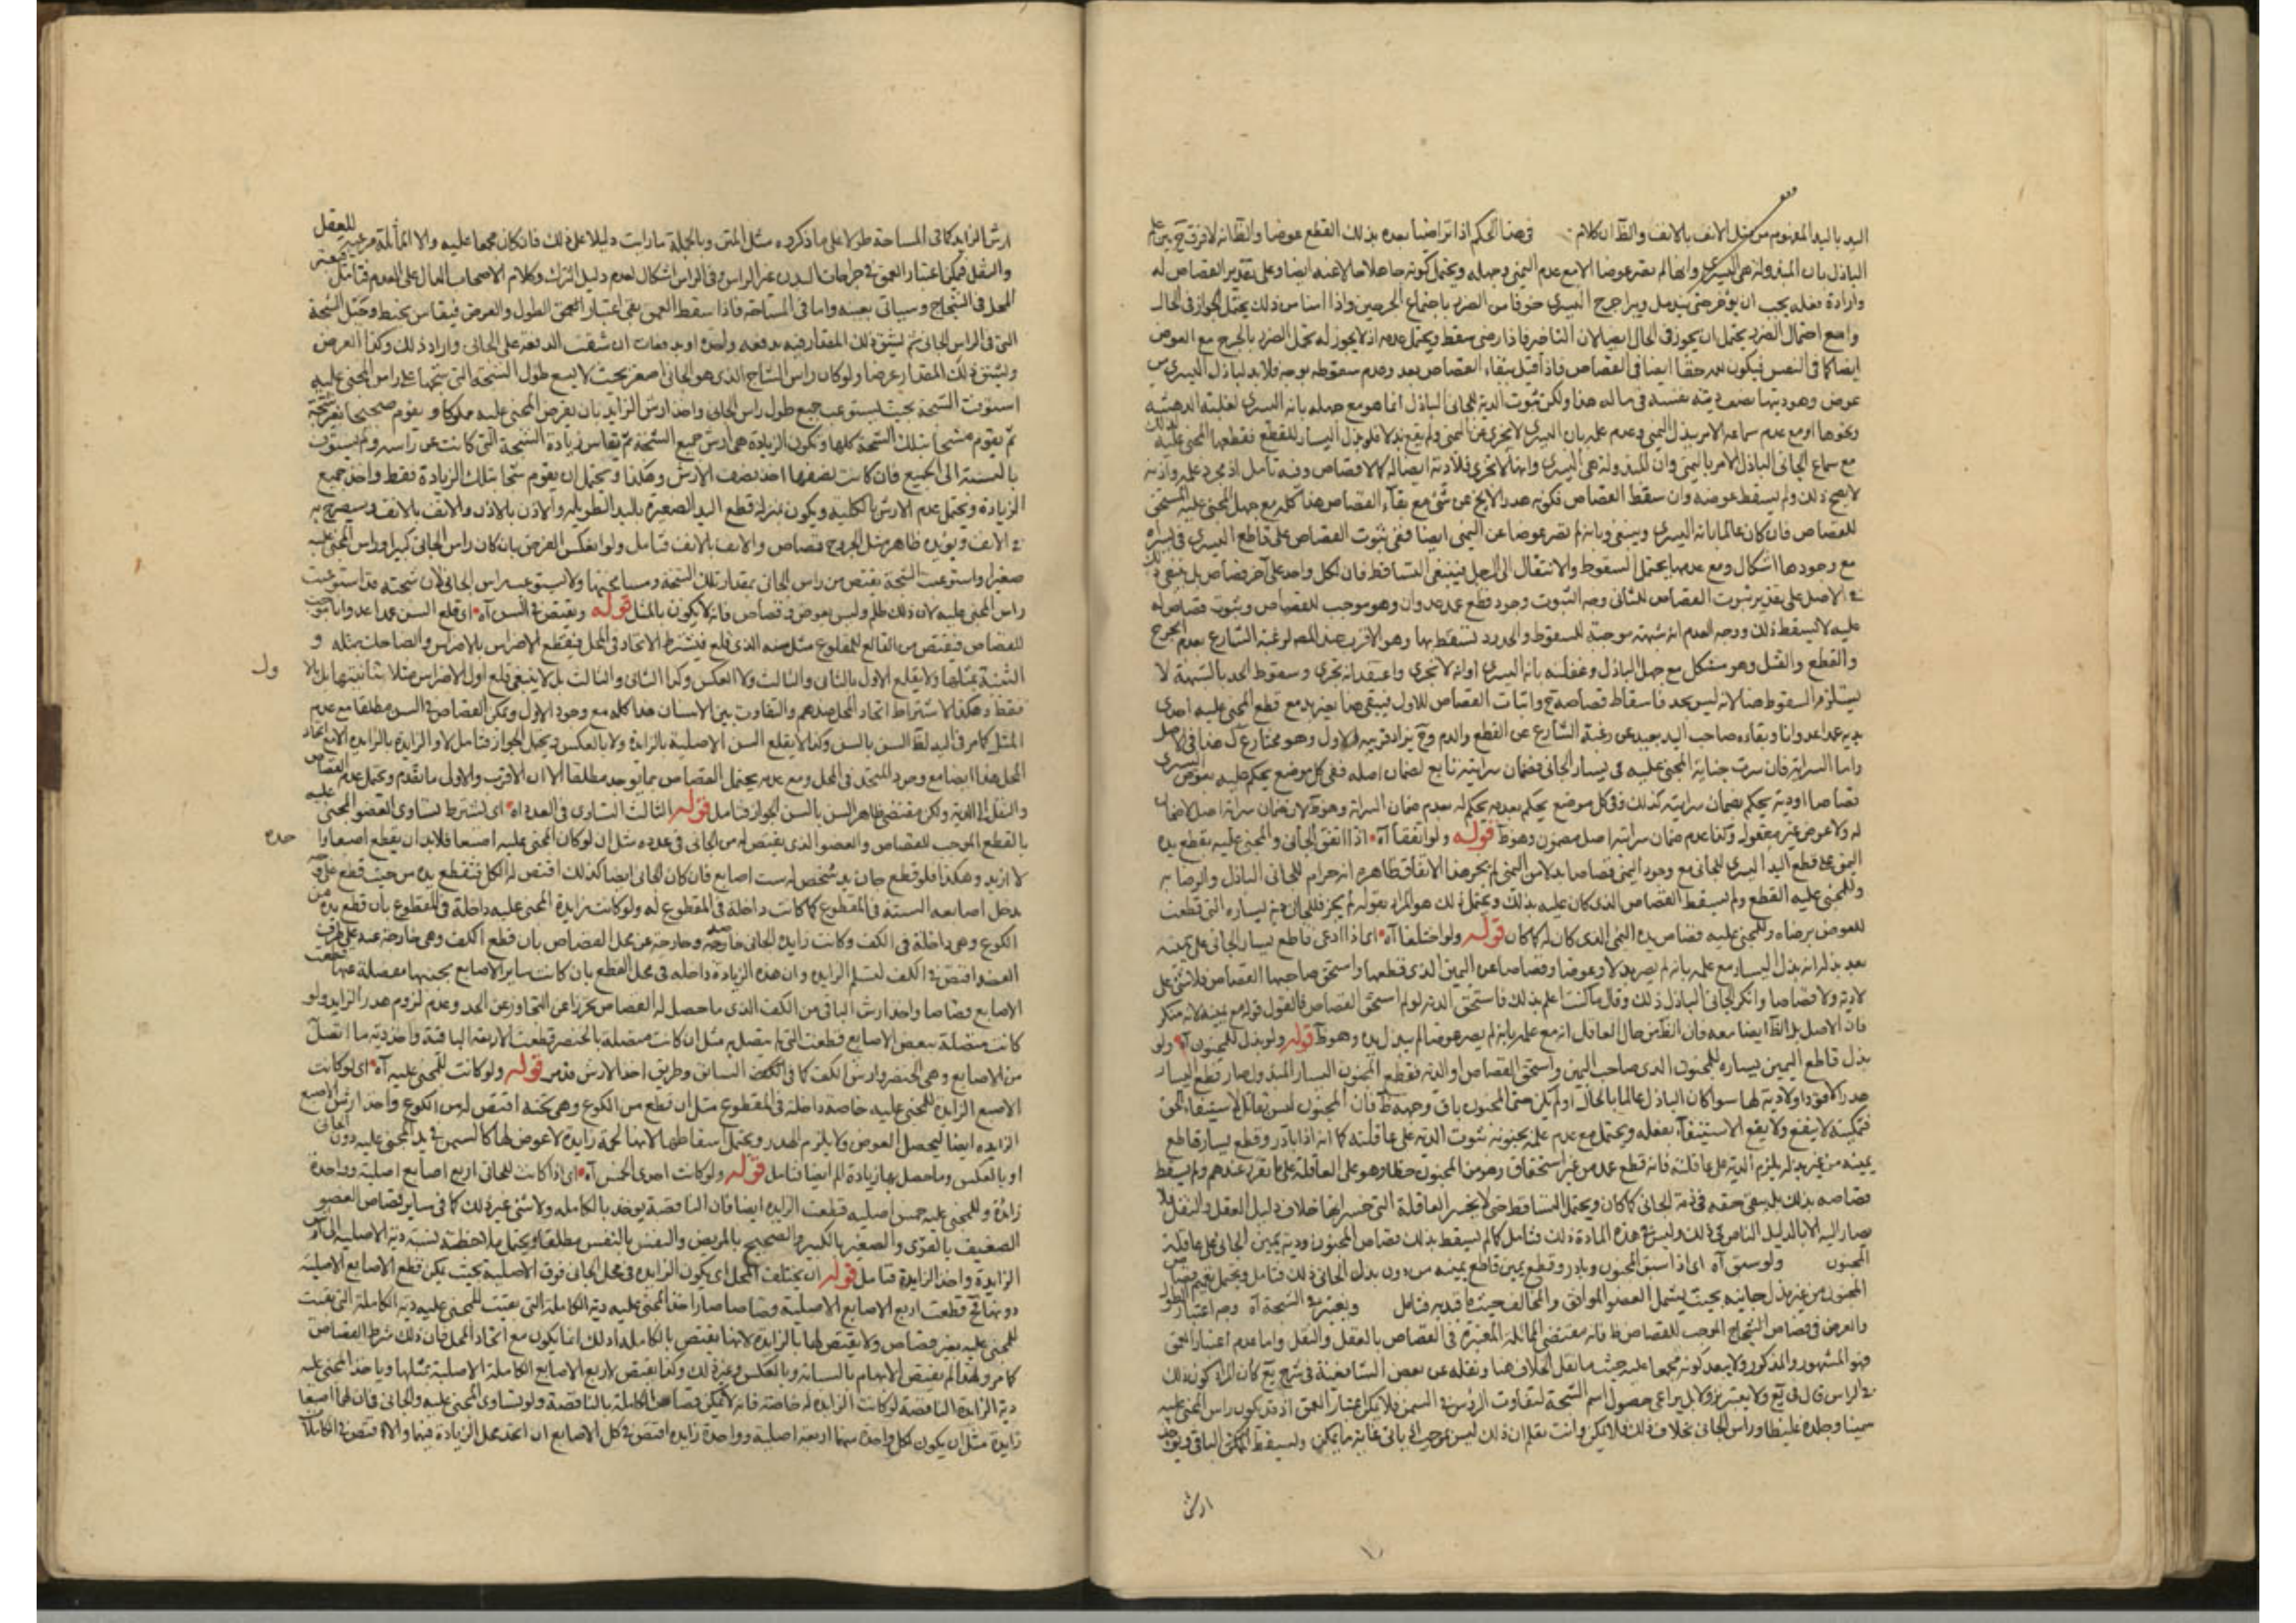 اليد باليد المعلوم من مثل الانف بالانف والظ ان كلام في هذا الحكم اذا تراضيا بعده بذلك القطع عوضا والظ انه لا فرق ح بين علم
الباذل بان المبذولة هي اليسرى وانها لم تصر عوضا الا مع عدم اليمنى وجهله ويحتمل كونه جاهلا لاعنه ايضا وعلى تقدير القصاص له
وارادة فعله يجب ان يؤخر حتى يندمل ويبرا جرح اليسرى خوفا من الضرر باجتماع الجرحين واذا امنا من ذلك يحتمل الجواز في الحال
وامع احتمال الضرر يحتمل ان يجوز في الحال ايضا لان التاخير فاذا رضي سقط ويحتمل عدمه اذ لا يجوز له تحمل الضرر بالجرح مع العوض
ايضا كما في النفس فيكون هدر حقا ايضا في القصاص فاذا قيل ببقاء القصاص بعد وعدم سقوطه بوجه فلا بد لباذل اليسرى من
عوض وهو ديتها نصف دية نفسه في ماله هذا ولكن ثبوت الدية للجاني الباذل انما هو مع جهله بانه اليسرى لغلبته الدهشة
ونحوها او مع عدم سماعه الامر ببذل اليمنى وعدم علمه بان اليسرى لا تجزى عن اليمنى ولم يقع بدلا فلو بذل اليسار للقطع فقطعها المجني عليه
مع سماع الجاني الباذل الامر باليمنى وان المبذولة هي اليسرى وانها لا تجزى فلا دية ايضا له كالاقصاص وفيه تامل اذ مجرد علمه واذنه
لا يصح ذلك ولم يسقط عوضه وان سقط القصاص فكونه هدرا لا يخ عن شئ مع بقاء القصاص هذا كله مع جهل المجني عليه المستحق
للقصاص فان كان عالما بانه اليسرى وبانه لم تصر عوضا عن اليمنى ايضا ففي ثبوت القصاص على قاطع اليسرى في يسراه
مع وجودها اشكال ومع عدمها يحتمل السقوط والانتقال الى الرجل فينبغي التساقط فان لكل واحد على آخر قصاص بل ينبغي
في الاصل على تقدير ثبوت القصاص للثاني وجه الثبوت وجود قطع عمد عدوان وهو موجب للقصاص وثبوت قصاص له
عليه لا يسقط ذلك ووجه العدم انه شبهته موجبة للسقوط والحدود تسقط بها وهو الاقرب عند المص لرغبة الشارع بعدم الجرح
والقطع والقتل وهو مشكل مع جهل الباذل وغفلته بانه اليسرى او انه لا تجزى واعتقد انه تجزى وسقوط الحد بالشبهة لا
يستلزم السقوط هنا لانه ليس بحد فاسقاط قصاصه ح واثبات القصاص للاول فيبقى هنا بغير يد مع قطع المجني عليه احدى
يديه عمدا عدوانا وبقاءه صاحب اليد بعيد عن رغبة الشارع عن القطع والدم وح يزاد قربه الاول وهو مختار ع ل هذا في الاصل
واما السراية فان سرت جناية المجني عليه في يسار الجاني فضمان سرايته تابع لضمان اصله ففي كل موضع يحكم عليه بعوض اليسرى
قصاصا او دية يحكم بضمان سرايته كذلك وفي كل موضع يحكم بعدمه يحكم له بعدم ضمان السراية وهو ظ لان ضمان سراية اصل لا ضمان
له ولا عوض غير معقول وكذا عدم ضمان سراية اصل مضمون وهو ظ قوله ولو اتفقا آه اذا اتفق الجاني والمجني عليه بقطع يده
اليمنى على قطع اليد اليسرى للجاني مع وجود اليمنى قصاصا بدلا من اليمنى لم يجز هذا الاتفاق ظاهره انه حرام للجاني الباذل والرضا به
وللمجني عليه القطع ولم يسقط القصاص الذي كان عليه بذلك ويحتمل ذلك هو المراد بقوله لم يجز فللجاني دية يساره التي قطعت
للعوض برضاه وللمجني عليه قصاص يده اليمنى الذي كان له كما كان قوله ولو اختلفا آه اي اذا ادعى قاطع يسار الجاني على يمينه
بعد بذله انه بذل اليسار مع علمه بانه لم يصر بدلا وعوضا وقصاصا عن اليمين الذي قطعها واستحق صاحبها القصاص فلا شئ على
لادية ولا قصاصا وانكر الجاني الباذل ذلك وقال ما كنت اعلم بذلك فاستحق الدية لو لم استحق القصاص فالقول قوله مع يمينه لانه منكر
فان الاصل بل الظ ايضا معه فان الظ من حال العاقل انه مع علمه بانه لم يصر عوضا لم يبذل يده وهو ظ قوله ولو بذل للمجنون آه ولو
بذل قاطع اليمين يساره للمجنون الذي صاحب اليمين واستحق القصاص او الدية فقطع المجنون اليسار المبذول صار قطع اليسار
هدرا لا قودا ولا دية لها سوا كان الباذل عالما بالحال او لم يكن حق المجنون باق وجهه ظ فان المجنون ليس بقابل لاستيفاء الحق
فتمكينه لا ينفع ولا يقع الاستيفآء بفعله ويحتمل مع عدم علمه بجنونه ثبوت الدية على عاقلته كما انه اذا بادر وقطع يسار قاطع
يمينه من غير بذله يلزم الدية على عاقلته فانه قطع عمد من غير استحقاق وهو من المجنون خطا وهو على العاقلة على ما تقرر عندهم ولم يسقط
قصاصه بذلك بل يبقى حقه في ذمة الجاني كما كان ويحتمل التساقط حتى لا يخسر العاقلة التي خسرانها خلاف دليل العقل والنقل فلا
يصار اليه الا بالدليل الناص على ذلك وليس في هذه المادة ذلك فتامل كما لم يسقط بذلك قصاص المجنون ودية يمين الجاني على عاقلة
المجنون ولو سبق آه اي اذا سبق المجنون وبادر وقطع يمين قاطع يمينه من دون بذل الجاني ذلك فتامل ويحتمل تعميم قصاص
المجنون من غير بذل جانيه بحيث يشمل العضو الموافق والمخالف حيث ما قيد به فتامل ويعتبر في الشجة آه وجه اعتبار الطول
والعرض في قصاص الشجاج الموجب للقصاص ظ فانه مقتضى المماثلة المعتبرة في القصاص بالعقل والنقل واما عدم اعتبار العمق
فهو المشهور والمذكور ولا يبعد كونه مجمعا عليه حيث ما نقل الخلاف هنا ونقله عن بعض الشافعية في شرح يع كان المراد كون ذلك
في الراس قال في يع ولا يعتبر نزولا بل يراعى حصول اسم الشجة لتفاوت الرؤس في السمن فلا يمكن اعتبار العمق اذ قد يكون راس المجني عليه
سمينا وجلده غليظا وراس الجاني بخلاف ذلك فلا يمكن وانت تعلم ان ذلك ليس بموجب اذ ياتى غاية ما يمكن وليسقط الممكن الباقي ويؤخذ
ارش
ارش الزايد كما في المساحة طولا على ما ذكروه مثل المتن وبالجملة ما رايت دليلا على ذلك فان كان مجمعا عليه والا المماثلة مرعية للعقل
والنقل فيمكن اعتبار العمق في جراحات البدن غير الراس وفي الراس اشكال لعدم دليل الترك وكلام الاصحاب الدال على العدم فتامل فيعتبر
المحل في الشجاج وسياتي بعينه واما في المساحة فاذا سقط العمق بقى اعتبار العمق الطول والعرض فيقاس بخيط وحبل الشجة
التي في الراس الجاني ثم يشق ذلك المقدار فيه بدفعة واحدة او بدفعات ان شقت الدفعة على الجاني واراد ذلك وكذا العرض
ويشق ذلك المقدار عرضا ولو كان راس الشاج الذي هو الجاني اصغر بحيث لا يسع طول الشجة التي شجها على راس المجني عليه
استوفت الشجة بحيث يستوعب جميع طول راس الجاني واخذ ارش الزايد بان يفرض المجني عليه مملوكا ويقوم صحيحا بغير شجة
ثم يقوم مشجا بتلك الشجة كلها ويكون الزيادة هي ارش جميع الشجة ثم يقاس زيادة الشجة التي كانت عن راسه ولم يستوف
بالنسبة الى الجميع فان كانت نصفها اخذ نصف الارش وهكذا ويحتمل ان يقوم شجا بتلك الزيادة فقط واخذ جميع
الزيادة ويحتمل عدم الارش بالكلية ويكون بمنزلة قطع اليد الصغيرة باليد الطويلة والاذن بالاذن والانف بالانف وسيصرح به
في الانف ويؤيده ظاهر مثل الجروح قصاص والانف بالانف فتامل ولو انعكس الفرض بان كان راس الجاني كبيرا وراس المجني عليه
صغيرا واستوعبت الشجة يقتص من راس الجاني بمقدار تلك الشجة ومساحتها ولا يستوعب راس الجاني لان شجته قد استوعبت
راس المجني عليه لان ذلك ظلم وليس بعوض وقصاص فانه لا يكون بالمثل قوله ويقتص في السن آه اي قلع السن عمدا عدوانا موجب
للقصاص فيقتص من القالع للمقلوع مثل سنه الذي قلع فيشترط الاتحاد في المحل فيقطع الاضراس بالاضراس والضاحك بمثله و
الثنية بمثلها ولا يقلع الاول بالثاني والثالث ولا العكس وكذا الثاني والثالث بل لا ينبغي قلع اول الاضراس مثلا بثانيتها بل بالاول
فقط وهكذا لاشتراط اتحاد المحل عندهم والتفاوت بين الاسنان هذا كله مع وجود الاول ويمكن القصاص في السن مطلقا مع عدم
المثل كما مر في اليد لظ السن بالسن وكذا لا يقلع السن الاصلية بالزايدة ولا بالعكس ويحتمل الجواز فتامل ولا الزايدة بالزايدة الا مع اتحاد
المحل هذا ايضا مع وجود المتحد في المحل ومع عدمه يحتمل القصاص بما يوجد مطلقا الا ان الاقرب والاولى ما تقدم ويحتمل عدم القصاص
والنقل الى الدية ولكن مقتضى ظاهر السن بالسن الجواز فتامل قوله الثالث التساوي في العدد اه اي يشترط تساوي العضو المجني عليه
بالقطع الموجب للقصاص والعضو الذي يقتص له من الجاني في عدده مثل ان لو كان المجني عليه اصبعا فلابد ان يقطع اصبعا واحده
لا ازيد وهكذا فلو قطع جان يد شخص له ست اصابع فان كان الجاني ايضا كذلك اقتص له الكل فتقطع يده من حيث قطع على وجه
يدخل اصابعه الستة في المقطوع كما كانت داخلة في المقطوع له ولو كانت زايدة المجني عليه داخلة في المقطوع بان قطع يده من
الكوع وهي داخلة في الكف وكانت زايدة الجاني خارجة وخارجة عن محل القصاص بان قطع الكف وهي خارجة عنه على طرف
العضد اقتص في الكف لتسلم الزايدة وان هذه الزيادة داخله في محل القطع بان كانت ساير الاصابع بجنبها منفصلة عنها قطعت
الاصابع قصاصا واخذ ارش الباقي من الكف الذي ما حصل له القصاص تحرزا عن التجاوز عن الحد وعدم لزوم هدر الزايد ولو
كانت متصلة ببعض الاصابع قطعت التي لم تتصل به مثل ان كانت متصلة بالخنصر قطعت الاربعة الباقية واخذ دية ما اتصل
من الاصابع وهي الخنصر وارش الكف كما في الكف السابق وطريق اخذ الارش قد مر قوله ولو كانت للمجني عليه آه اي لو كانت
الاصبع الزايدة للمجني عليه خاصة داخلة في المقطوع مثل ان قطع من الكوع وهي تحته اقتص له من الكوع واخذ ارش الاصبع
الزايده ايضا ليحصل العوض ولا يلزم الهدر ويحتمل اسقاطها لانها لحمة زايدة لا عوض لها كالسمن في يد المجني عليه دون الجاني
او بالعكس وما حصل بها زيادة الم ايضا فتامل قوله ولو كانت احدى الخمس آه اي اذا كانت للجاني اربع اصابع اصلية وواحدة
زائدة وللمجني عليه خمس اصلية قطعت الزايدة ايضا فان الناقصة يؤخذ بالكاملة ولا شئ غير ذلك كما في ساير قصاص العضو
الضعيف بالقوى والصغير بالكبير والصحيح بالمريض والنفس بالنفس مطلقا ويحتمل ملاحظة نسبة دية الاصلية الى
الزايدة واخذ الزايدة فتامل قوله ان يختلف المحل اي يكون الزايدة في محل الجاني فوق الاصلية بحيث يمكن قطع الاصابع الاصلية
دونها ح قطعت اربع الاصابع الاصلية قصاصا واخذ المجني عليه دية الكاملة التي بقيت للمجني عليه دية الكاملة التي بقيت
للمجني عليه بغير قصاص ولا يقتص لها بالزايدة لانها يقتص بالكاملة اذ ذلك انما يكون مع اتحاد المحل فان ذلك شرط القصاص
كما مر ولهذا لم يقتص الابهام بالسبابة وبالعكس وغير ذلك وكذا يقتص لاربع الاصابع الكاملة الاصلية بمثلها وياخذ المجني عليه
دية الزايدة الناقصة لو كانت الزايدة له خاصة فانه لا يمكن قصاص الكاملة بالناقصة ولو تساوى المجني عليه والجاني فان لهما اصبعا
زايدة مثل ان يكون لكل واحدة منهما اربعة اصلية وواحدة زايدة اقتص في كل الاصابع ان اتحد محل الزيادة فيهما والا اقتص في الكاملات